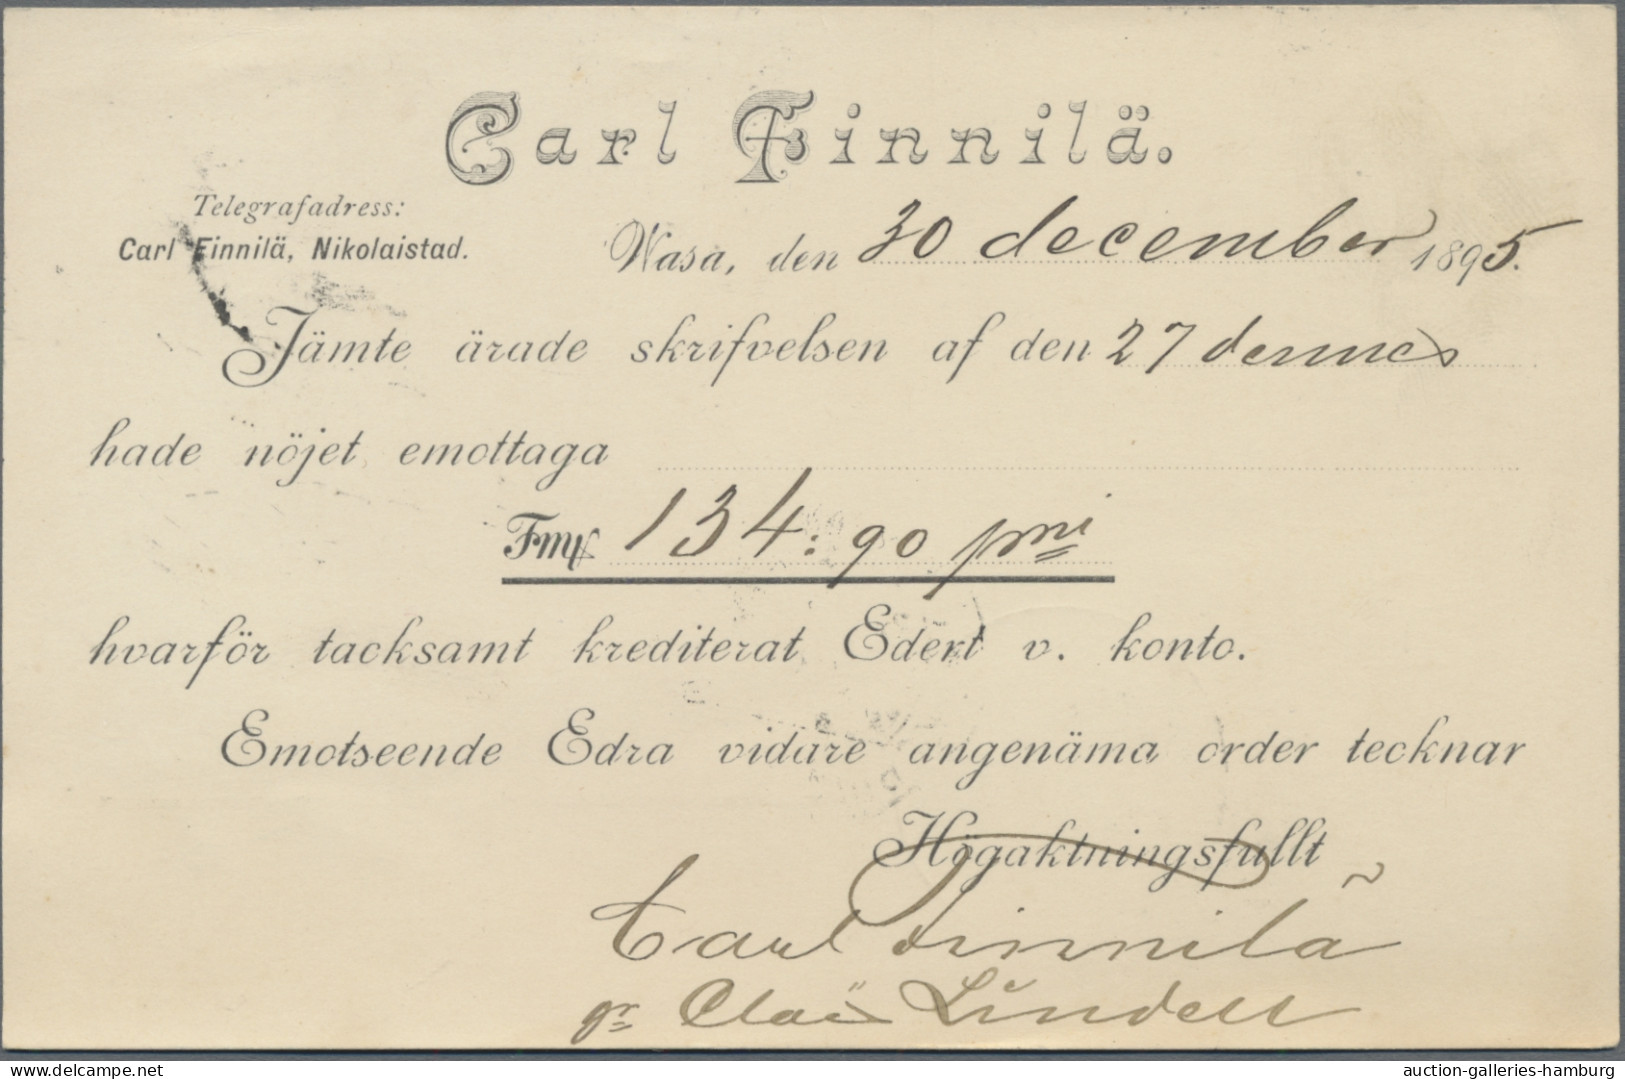 Carl Finnilä.
Telegrafadress:
Carl Finnilä, Nikolaistad.
Wasa, den 30 december 1895.
Jämte ärade skrifvelsen af den 27 dennes
hade nöjet emottaga
Fmk 134: 90 pni
hvarför tacksamt krediterat Edert v. konto.
Emotseende Edra vidare angenäma order tecknar
Högaktningsfullt
Carl Finnilä
gr Claës Lindell
hipstamp.com & delcampe.net
auction-galleries-hamburg